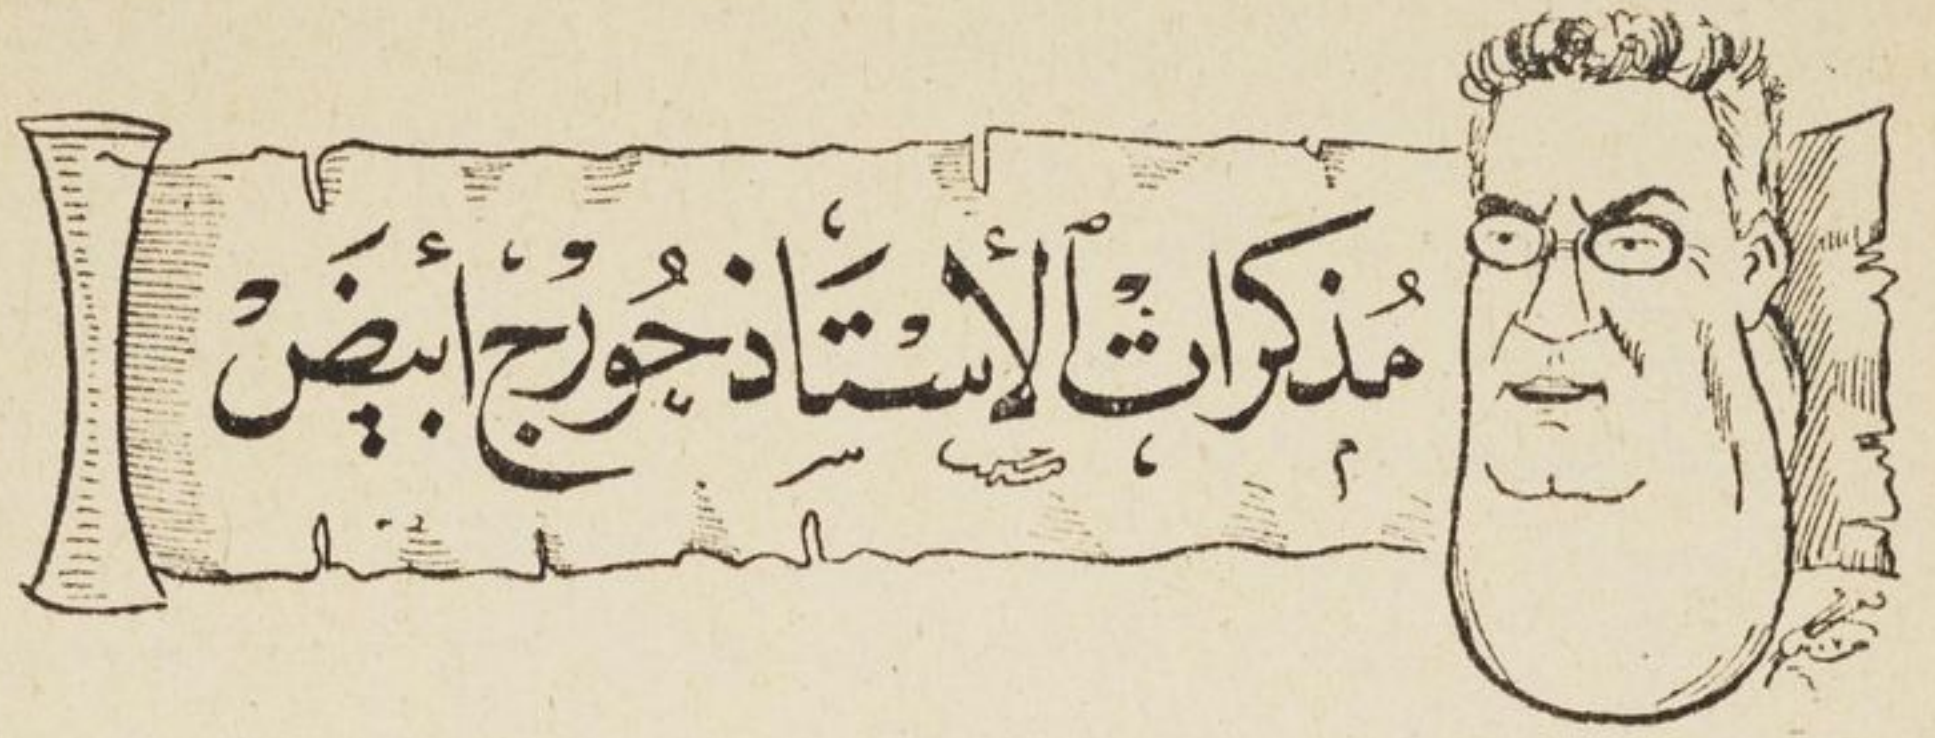 مُذكرات ٱلأسْتَاذ جُورْج أبيَضْ